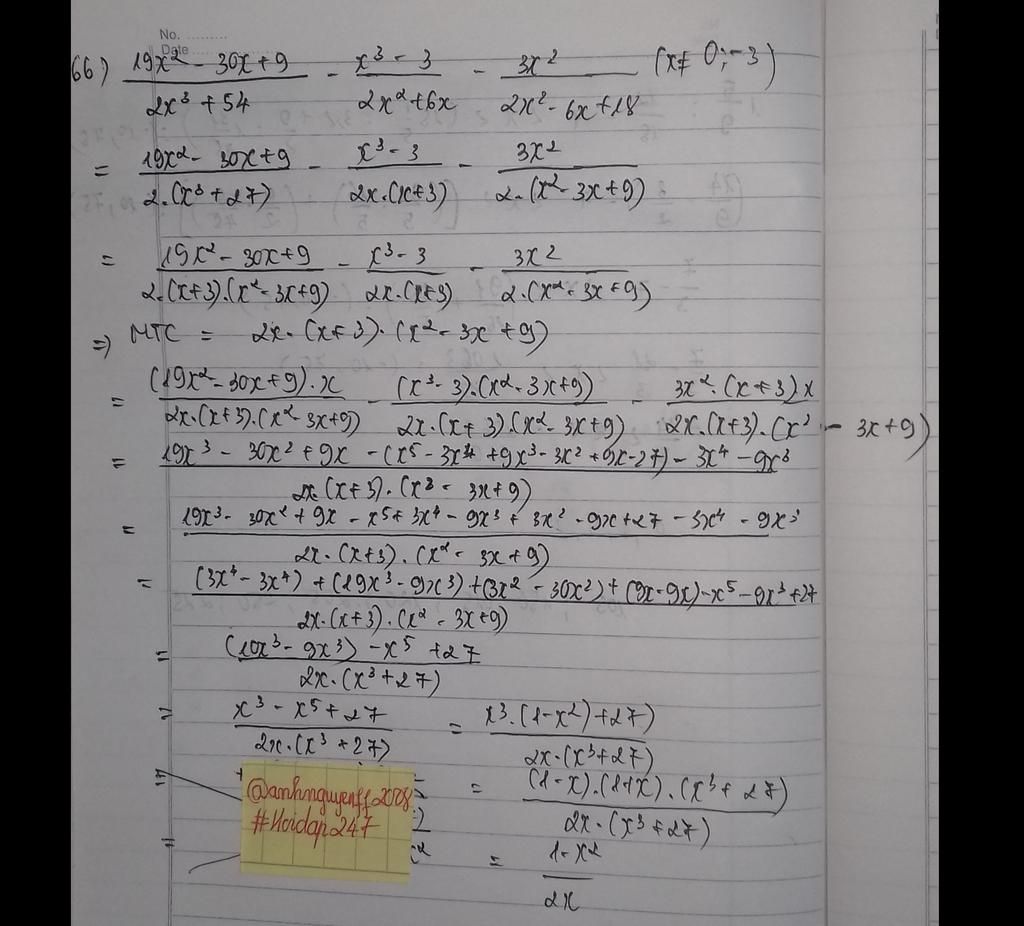 No. .........
Date
66) (19x² - 30x + 9)/(2x³ + 54) - (x³ - 3)/(2x² + 6x) - 3x²/(2x² - 6x + 18) (x ≠ 0; -3)
= (19x² - 30x + 9)/(2.(x³ + 27)) - (x³ - 3)/(2x.(x+3)) - 3x²/(2.(x² - 3x + 9))
= (19x² - 30x + 9)/(2.(x+3).(x² - 3x + 9)) - (x³ - 3)/(2x.(x+3)) - 3x²/(2.(x² - 3x + 9))
=> MTC = 2x.(x+3).(x² - 3x + 9)
= ((19x² - 30x + 9).x)/(2x.(x+3).(x² - 3x + 9)) - ((x³ - 3).(x² - 3x + 9))/(2x.(x+3).(x² - 3x + 9)) - (3x².(x+3).x)/(2x.(x+3).(x² - 3x + 9))
= (19x³ - 30x² + 9x - (x⁵ - 3x⁴ + 9x³ - 3x² + 9x - 27) - 3x⁴ - 9x³)/(2x.(x+3).(x² - 3x + 9))
= (19x³ - 30x² + 9x - x⁵ + 3x⁴ - 9x³ + 3x² - 9x + 27 - 3x⁴ - 9x³)/(2x.(x+3).(x² - 3x + 9))
= ((3x⁴ - 3x⁴) + (19x³ - 9x³) + (3x² - 30x²) + (9x - 9x) - x⁵ - 9x³ + 27)/(2x.(x+3).(x² - 3x + 9))
= ((10x³ - 9x³) - x⁵ + 27)/(2x.(x³ + 27))
= (x³ - x⁵ + 27)/(2x.(x³ + 27)) = (x³.(1 - x²) + 27))/(2x.(x³ + 27))
= = ((1 - x).(1 + x).(x³ + 27))/(2x.(x³ + 27))
@anhnguyenff2008
#Hoidap247
= = (1 - x²)/(2x)